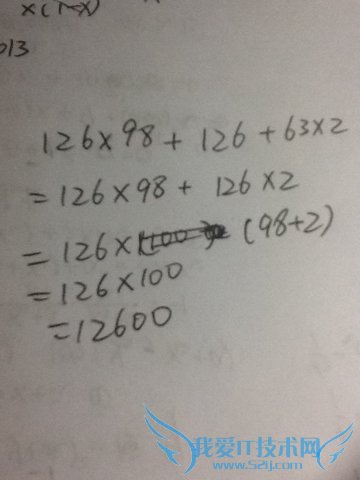 x(1-x)
013
126×98+126+63×2
=126×98+126×2
=126×(98+2)
=126×100
=12600
我爱IT技术网
www.52ij.com